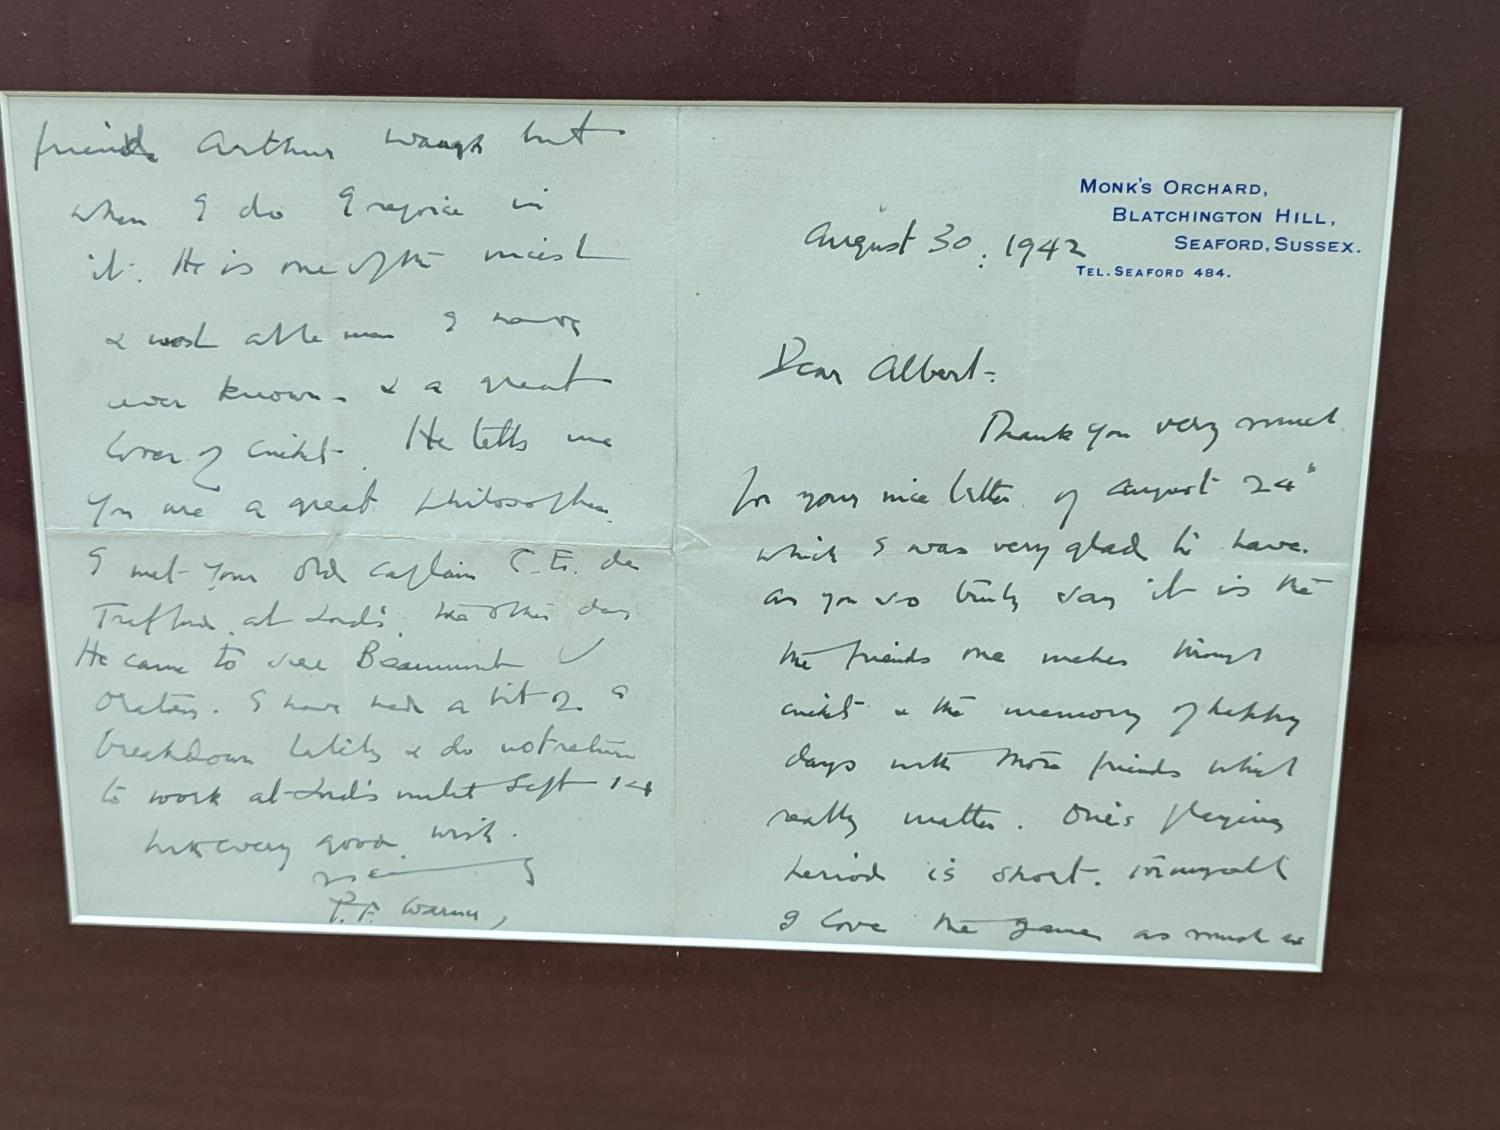 MONK'S ORCHARD,
BLATCHINGTON HILL,
SEAFORD, SUSSEX.
TEL. SEAFORD 484.
August 30. 1942
Dear Albert -
Thank you very much
for your nice letter of August 24"
which I was very glad to have.
as you so truly say it is the
the friends one makes through
cricket & the memory of happy
days with those friends which
really matter. One's playing
period is short. 
I love the game as much as
friends Arthur Waugh but
when I do I rejoice in
it. He is one of the nicest
& most able men I have
ever known - & a great
lover of cricket. He tells me
you are a great philosopher.
I met your old captain C. E. de
Trafford at Lord's the other day
He came to see Beaumont v
Oratory. I have had a bit of a
breakdown lately & do not return
to work at Lord's until Sept 14
with every good wish.
P. F. Warner